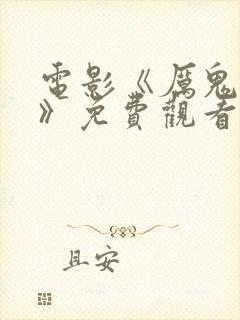 電影《厲鬼
》免費觀看
且安